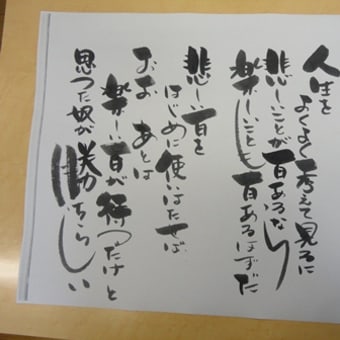 人生を
よくよく考えて見るに
悲しいことが百あるなら
楽しいことも百あるはずだ
悲しい百を
はじめに使いはたせば
おお あとは
楽しい百が待つだけと
思った奴が勝ちらしい